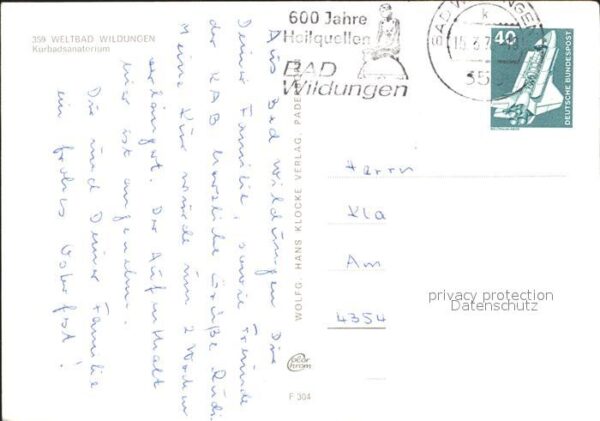 359 WELTBAD WILDUNGEN
Kurbadsanatorium
600 Jahre
Heilquellen
BAD
Wildungen
BAD WILDUNGEN
k
40
DEUTSCHE BUNDESPOST
WOLFG. HANS KLOCKE VERLAG, PADE
Aus Bad Wildungen Dir
Deiner Familie, sowie Freunde
der KAB herzliche Grüße
Meine Kur wurde um 2 Wochen
verlängert. Der Aufenthalt
hier ist angenehm.
Dir und Deiner Familie
ein frohes Osterfest!
Herrn
Kla
Am
4354
privacy protection
Datenschutz
color
chrom
F 304